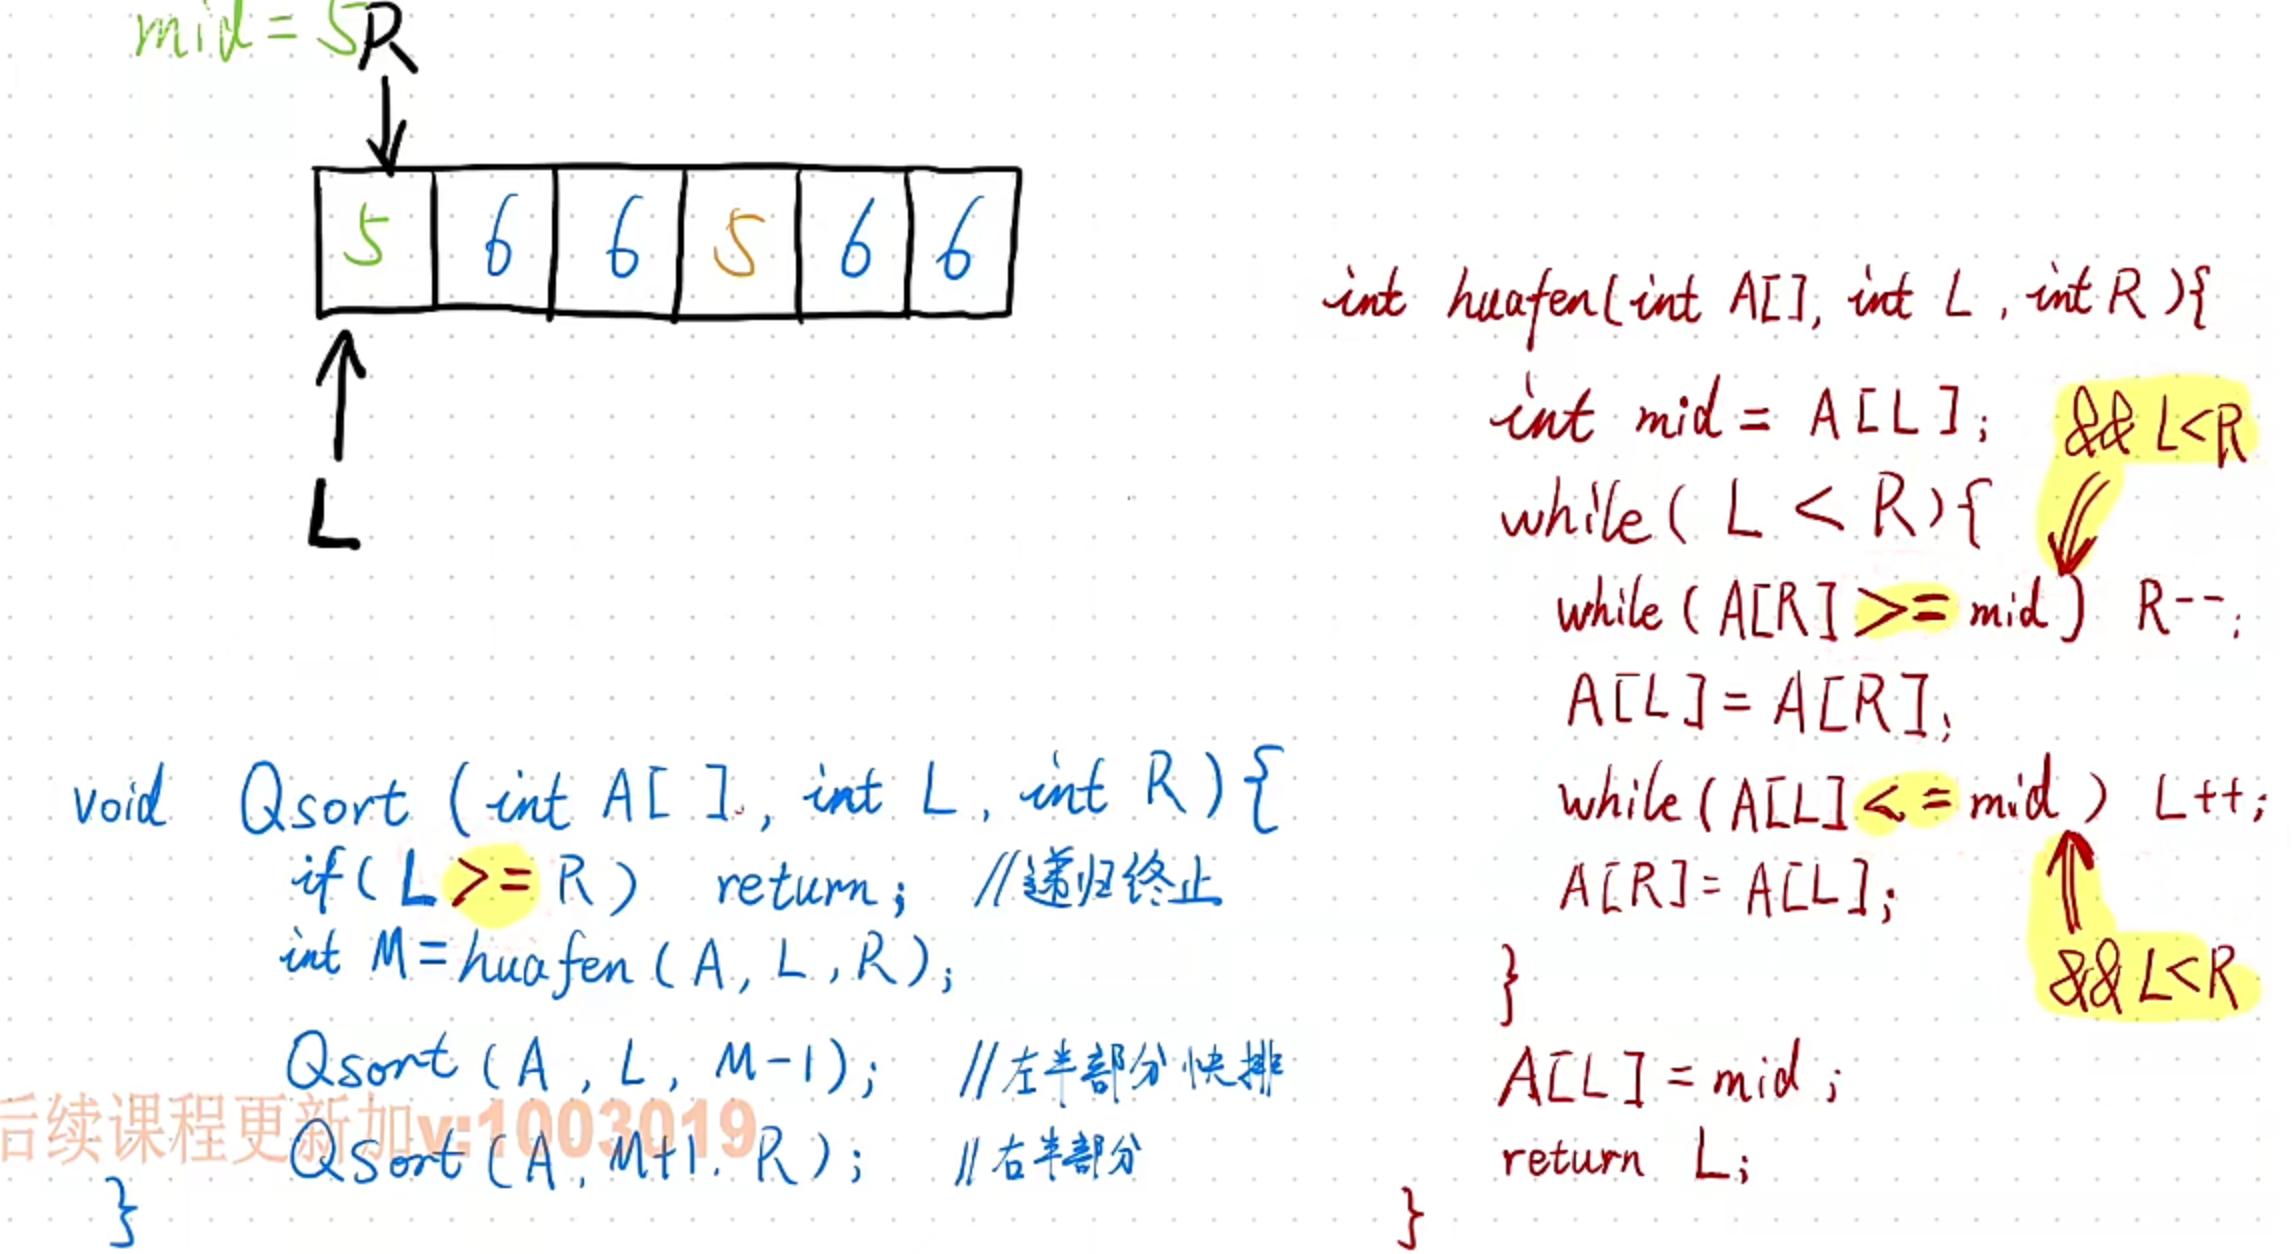 mid = 5
R
5 6 6 5 6 6
L
void Qsort (int A[ ], int L, int R){
if( L >= R) return; //递归终止
int M=huafen(A, L, R);
Qsort(A, L, M-1); //左半部分快排
Qsort(A, M+1, R); //右半部分
}
后续课程更新加v:1003019
int huafen(int A[], int L, int R){
int mid = A[L]; && L<R
while( L < R){
while(A[R] >= mid) R--;
A[L]=A[R];
while(A[L] <= mid) L++;
A[R]=A[L];
} && L<R
A[L]=mid;
return L;
}